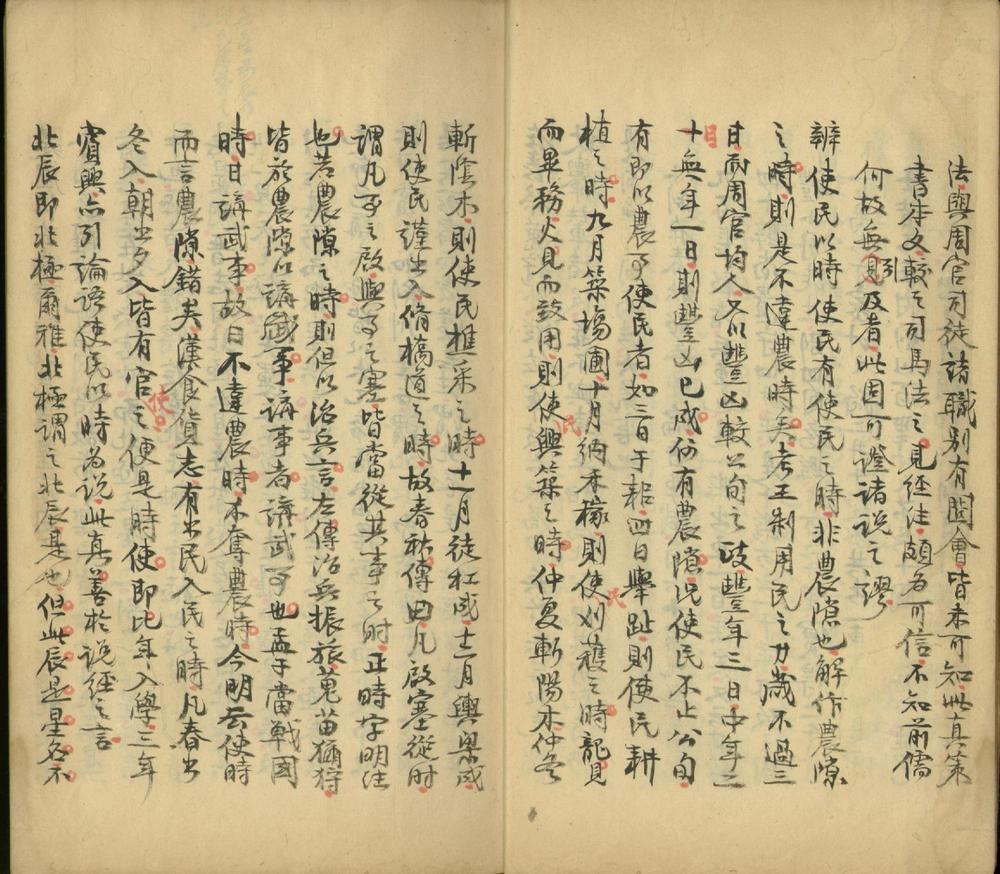 法與周官司徒諸職別有關會皆未可知此真策
書本文較之司馬法之見經注頗為可信不知前儒
何故無引及者此固可證諸說之謬
辨使民以時使民有使民之時非農隙也解作農隙
之時則是不違農時矣考王制用民之力歲不過三
日而周官均人又以豐凶較公旬之政豐年三日中年二
日無年一日則豐凶已成何有農隙況使民不止公旬
有即以農事使民者如三日于耜四日舉趾則使民耕
植之時九月築場圃十月納禾稼則使民刈穫之時龍見
而畢務火見而致用則使民興築之時仲夏斬陽木仲冬
斬陰木則使民樵采之時十一月徒杠成十二月輿梁成
則使民謹出入脩橋道之時故春秋傳曰凡啟塞從時
謂凡事之啟與事之塞皆當從其事之時正時字明注
也若農隙之時則但以治兵言左傳治兵振旅蒐苗獮狩
皆於農隙以講事講事者講武事也孟子當戰國
時日講武事故曰不違農時不奪農時今明云使時
而言農隙錯矣漢食貨志有出民入民之時凡春出
冬入朝出夕入皆有官之使便是時使即比年入學三年
賓興亦引論語使民以時為說此真善於說經之言
北辰即北極爾雅北極謂之北辰是也但此辰是星名不